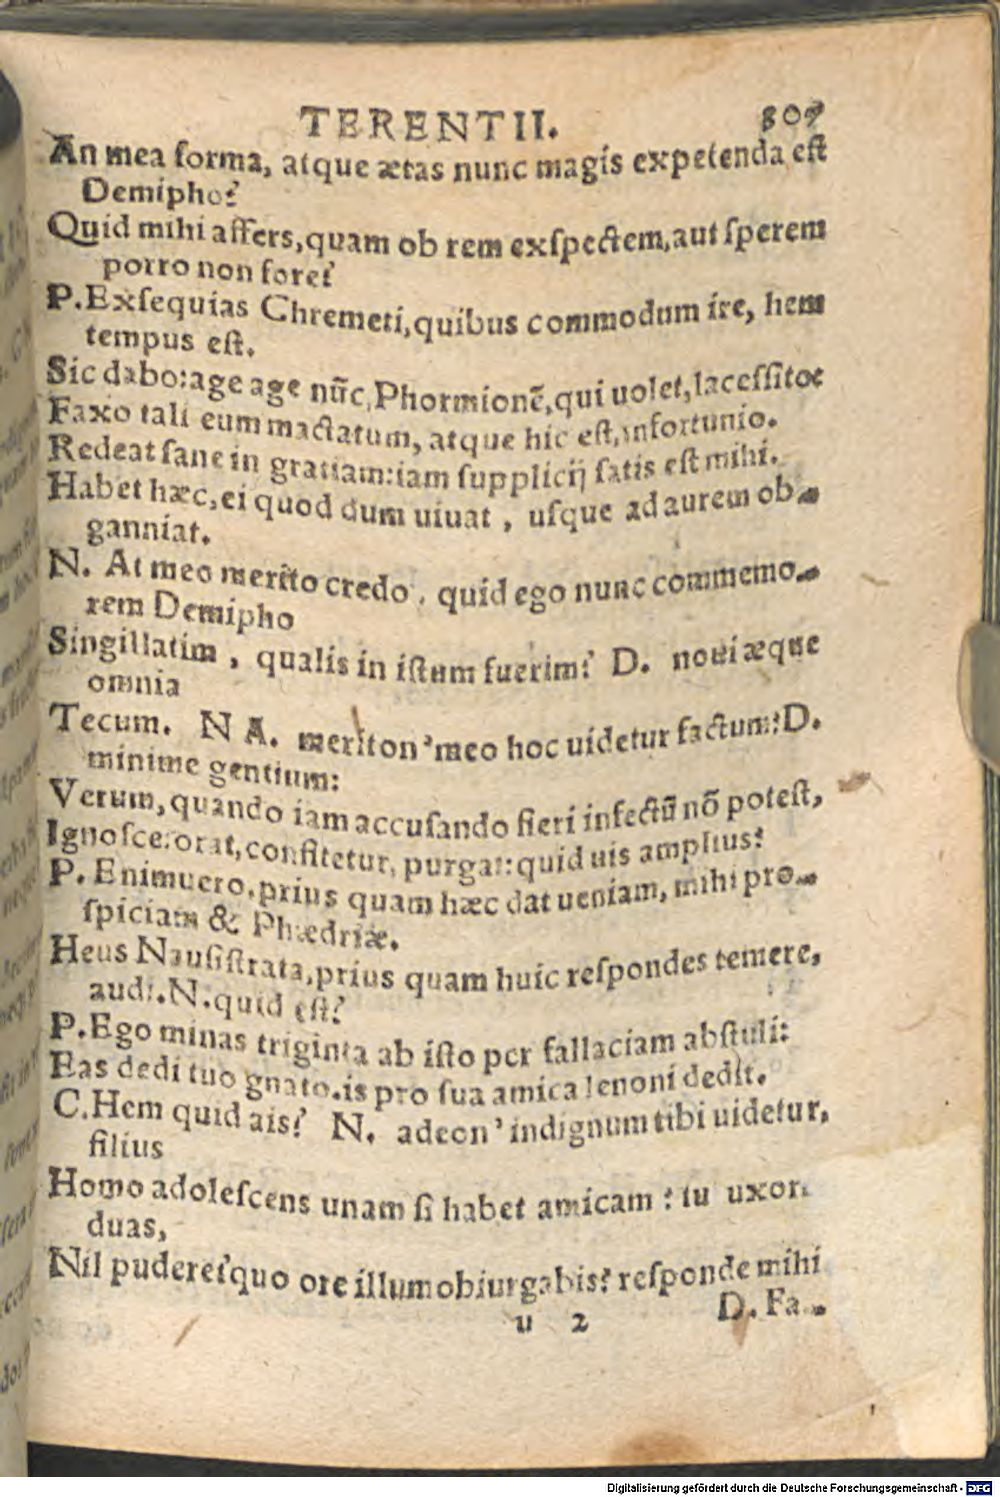 TERENTII. 307
An mea forma, atque ætas nunc magis expetenda eſt
Demipho?
Quid mihi affers, quam ob rem exſpectem, aut ſperem
porro non fore?
P. Exſequias Chremeti, quibus commodum ire, hem
tempus eſt.
Sic dabo: age age nũc, Phormionē, qui uolet, laceſſito:
Faxo tali eum mactatum, atque hic eſt, infortunio.
Redeat ſane in gratiam: iam ſupplicij ſatis eſt mihi.
Habet hæc, ei quod dum uiuat, uſque ad aurem ob-
ganniat.
N. At meo merito credo, quid ego nunc commemo-
rem Demipho
Singillatim, qualis in iſtum fuerim? D. noui æque
omnia
Tecum. N A. meriton' meo hoc uidetur factum? D.
minime gentium:
Verum, quando iam accuſando fieri infectũ nõ poteſt,
Ignoſce: orat, confitetur, purgat: quid uis amplius?
P. Enimuero, prius quam hæc dat ueniam, mihi pro-
ſpiciam & Phædriæ.
Heus Nauſiſtrata, prius quam huic reſpondes temere,
audi. N. quid eſt?
P. Ego minas triginta ab iſto per fallaciam abſtuli:
Eas dedi tuo gnato. is pro ſua amica lenoni dedit.
C. Hem quid ais? N. adeon' indignum tibi uidetur,
filius
Homo adoleſcens unam ſi habet amicam? tu uxores
duas,
Nil pudere? quo ore illum obiurgabis? reſponde mihi
u 2 D. Fa-
Digitalisierung gefördert durch die Deutsche Forschungsgemeinschaft - DFG